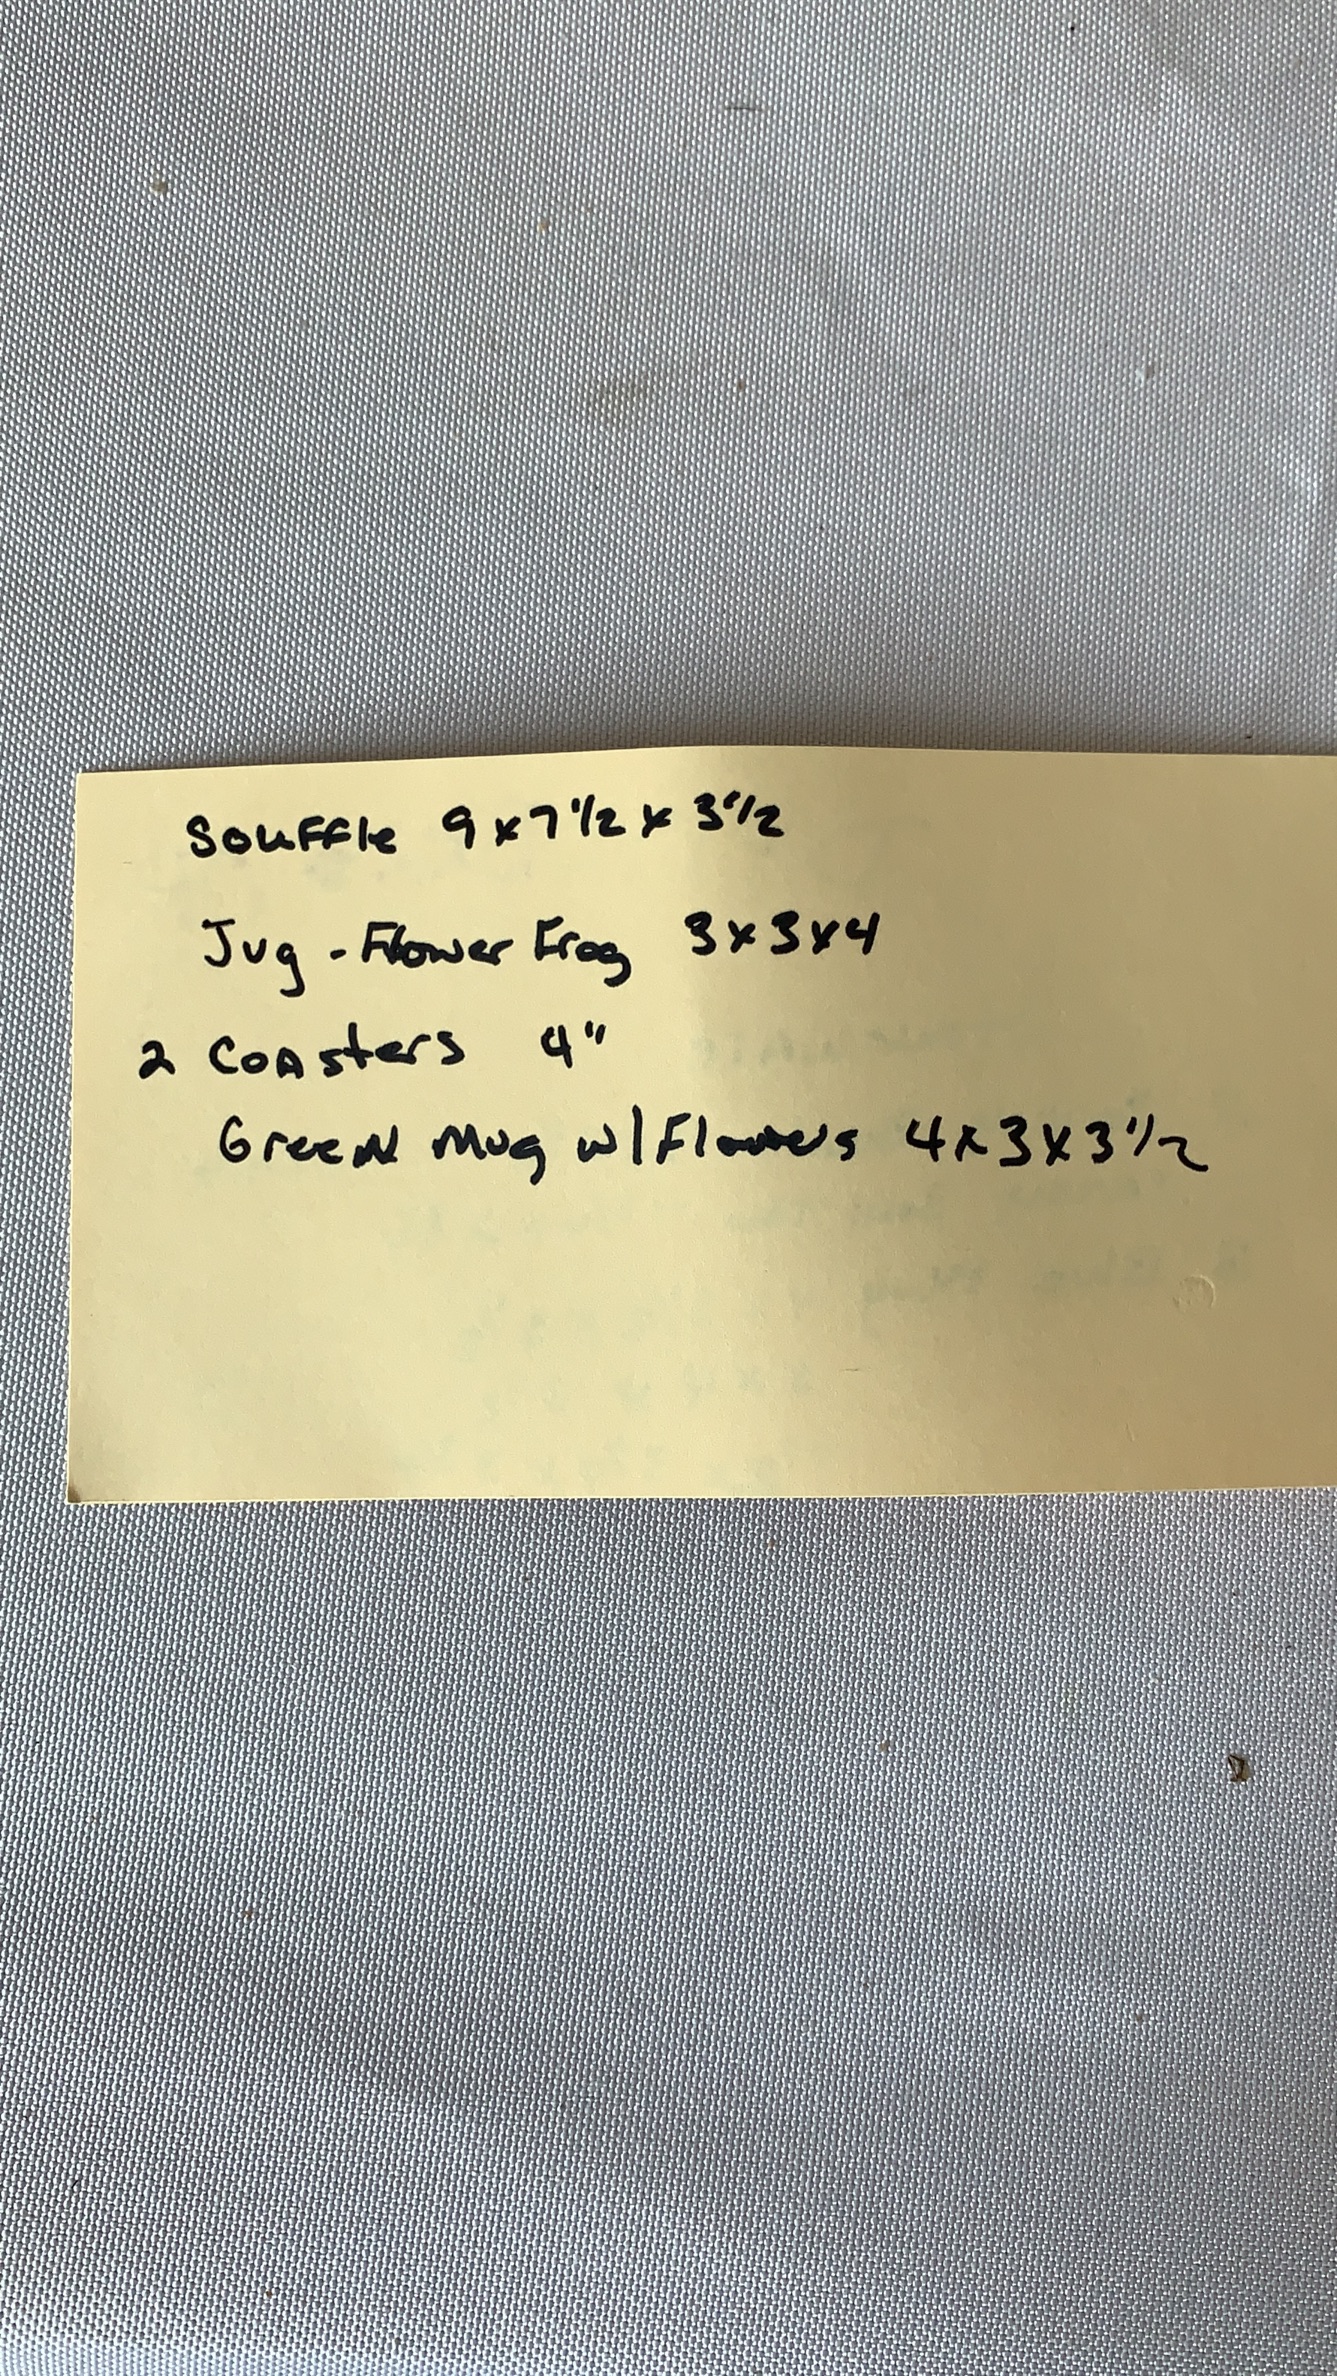 Souffle 9 x 7 1/2 x 3 1/2
Jug - Flower Frog 3 x 3 x 4
2 Coasters 4"
Green Mug w/ Flowers 4 x 3 x 3 1/2